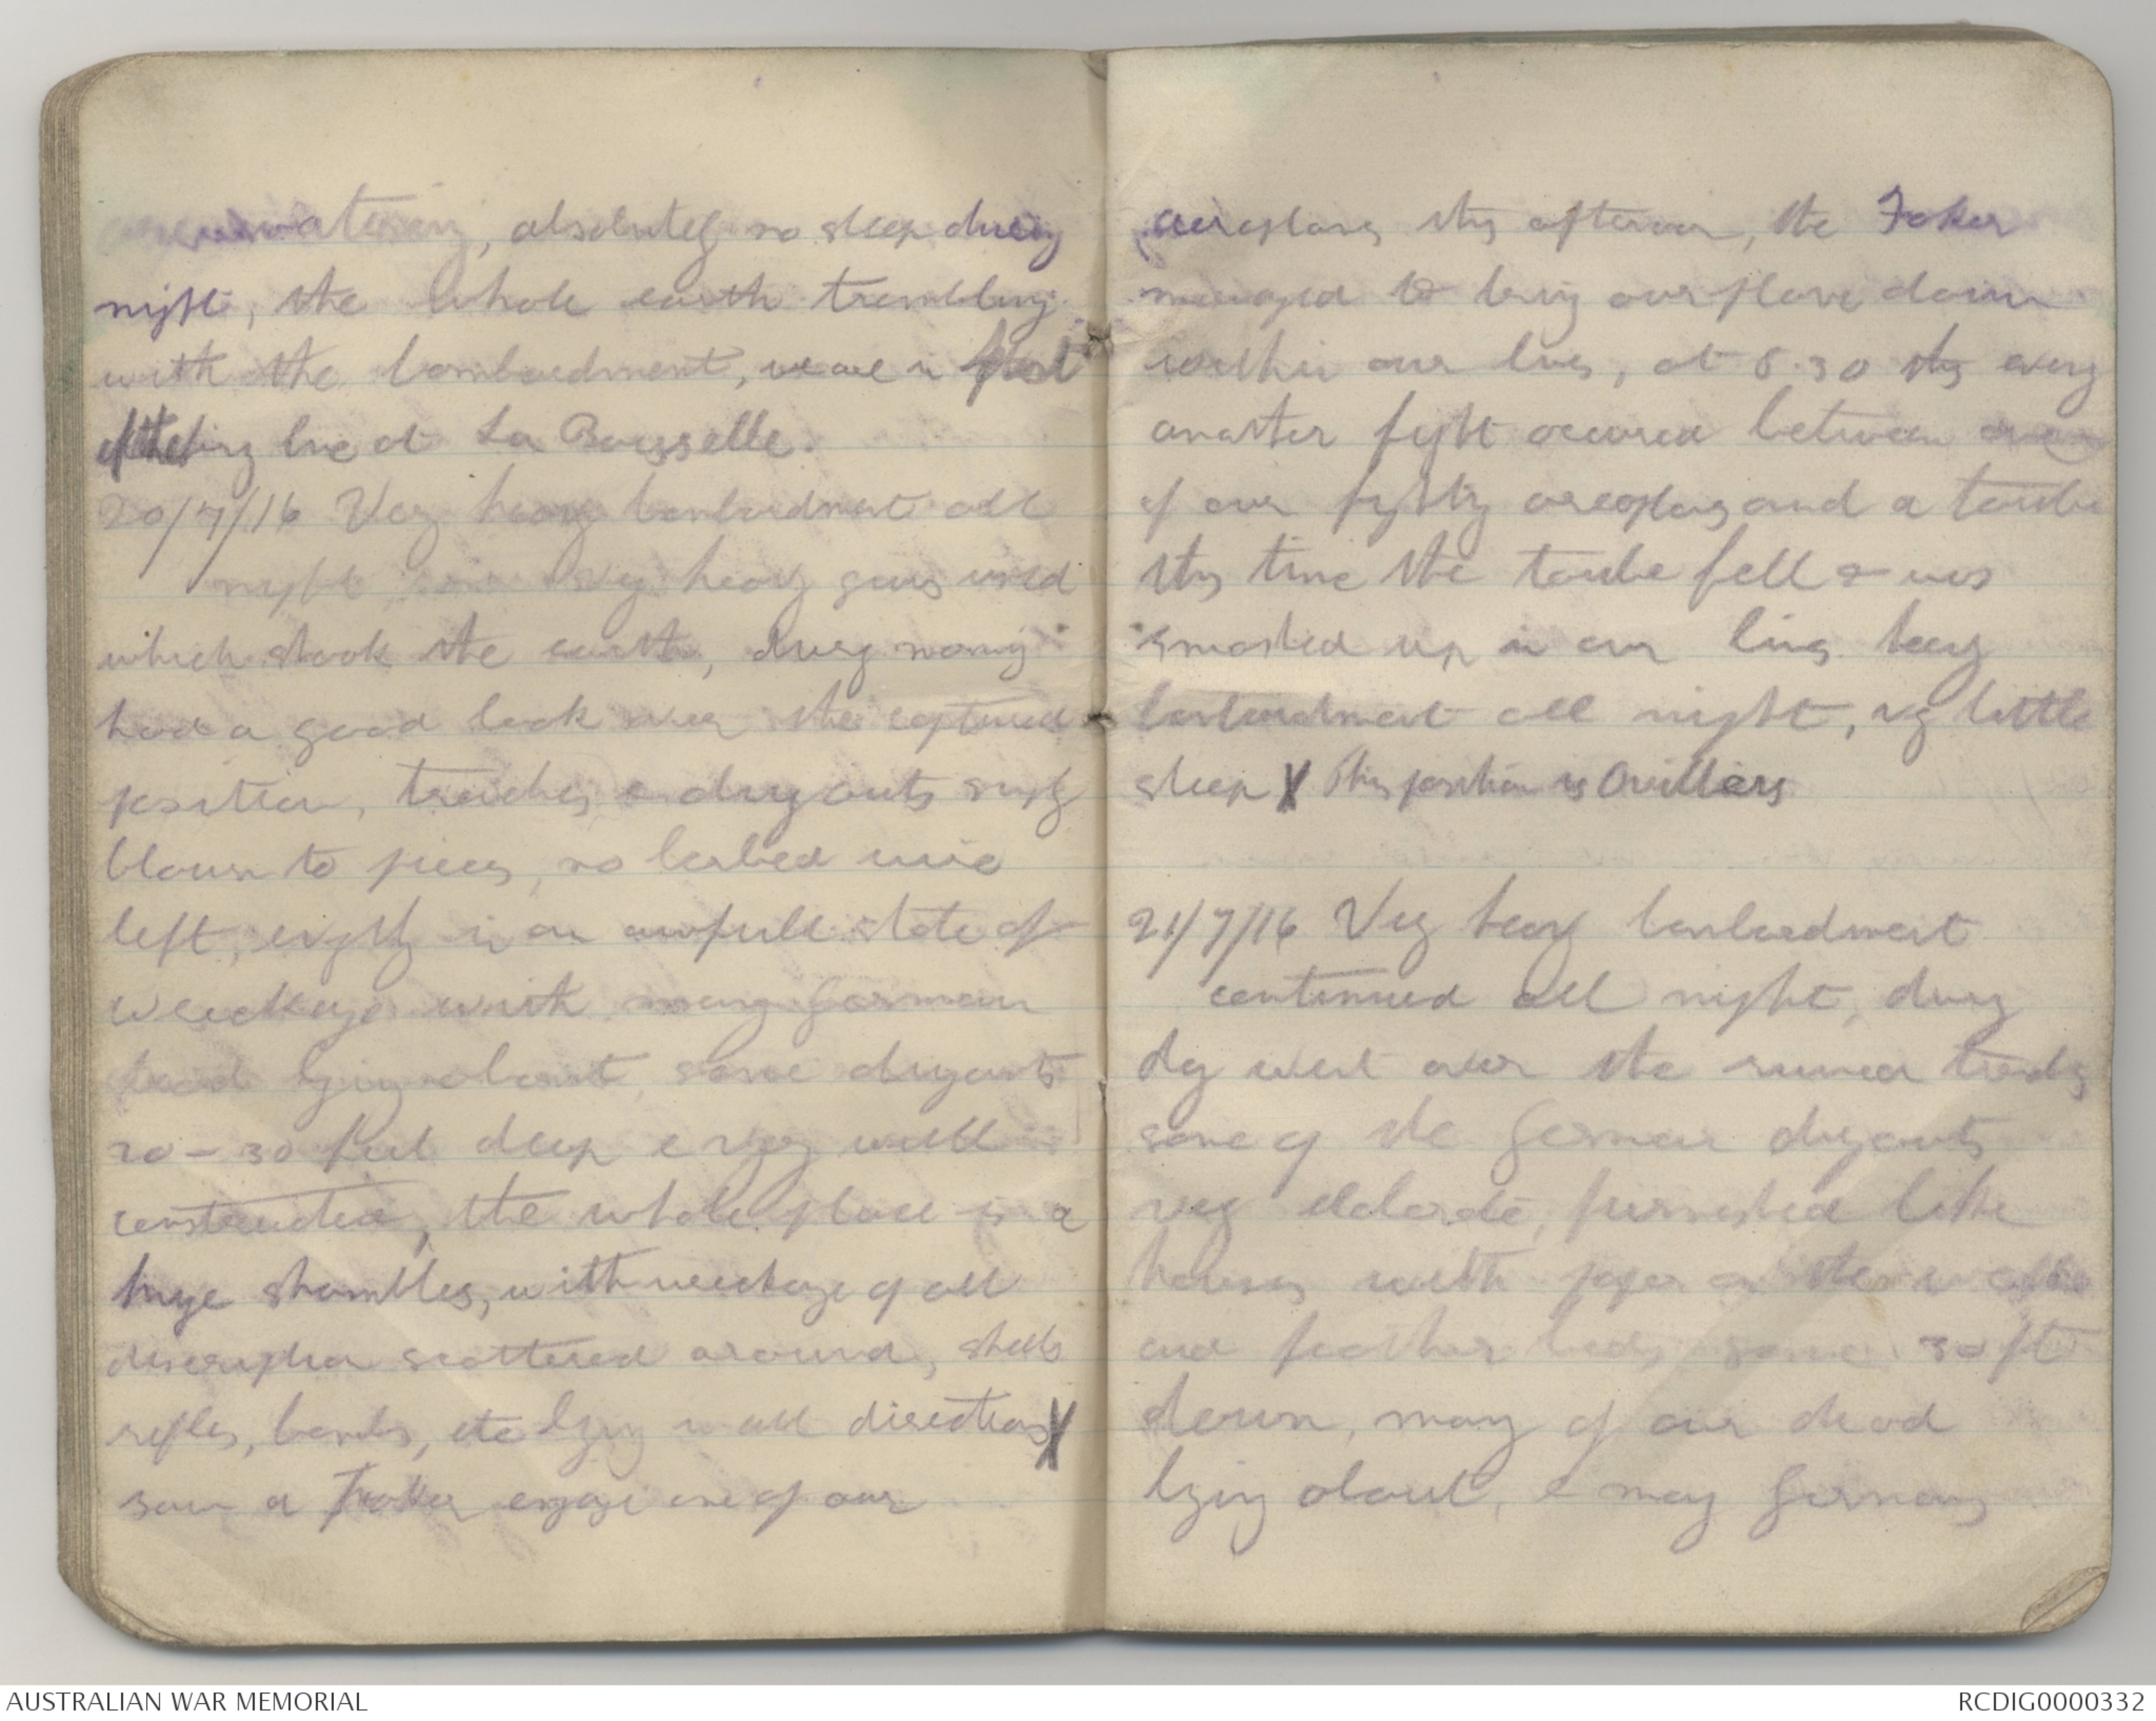 absolutely no sleep during
night, the whole earth trembling
with the bombardment, we are in front
of the line at La Boisselle.
20/7/16 Very heavy bombardment all
night very heavy guns used
which shook the earth, during morning
had a good look over the captured
position, trenches & dug outs simply
blown to pieces, no barbed wire
left, everything in an awfull state of
wreckage with many German
dead lying about, some dugouts
20-30 feet deep & very well
constructed, the whole place is a
huge shambles, with wreckage of all
description scattered around, shells
rifles, bombs, etc lying in all directions X
saw a Foker engage one of our
aeroplanes this afternoon, the Foker
managed to bring our plane down
within our lines, at 8.30 this evening
another fight occured between
of our fighting aeroplanes and a taube
this time the taube fell & was
smashed up in our lines heavy
bombardment all night, very little
sleep X This position is Ovillers
21/7/16 Very heavy bombardment
continued all night, during
day went over the ruined trenches
some of the German dugouts
very elaborate, furnished like
houses with paper on the walls
and feather beds, some 30 ft
down, many of our dead
lying about, & many Germans
AUSTRALIAN WAR MEMORIAL
RCDIG0000332